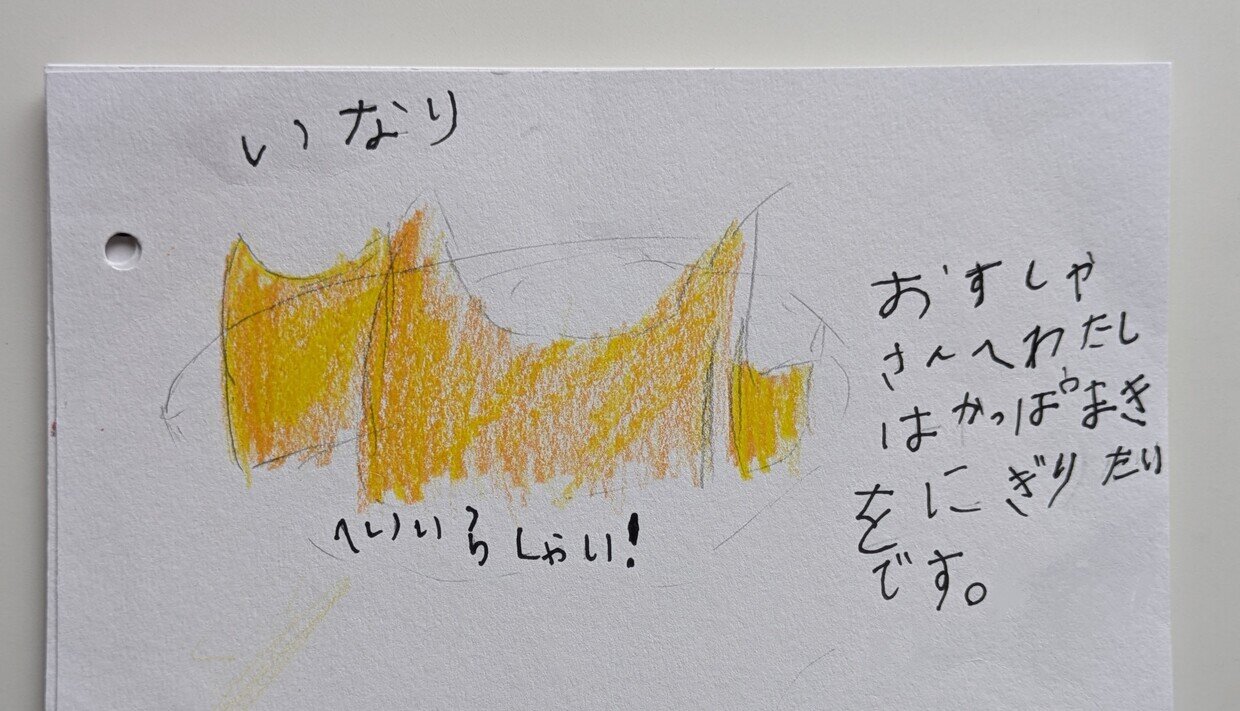 いなり
へいいらしゃい!
おすしや
さんへわたし
はかっぱまき
をにぎりたい
です。